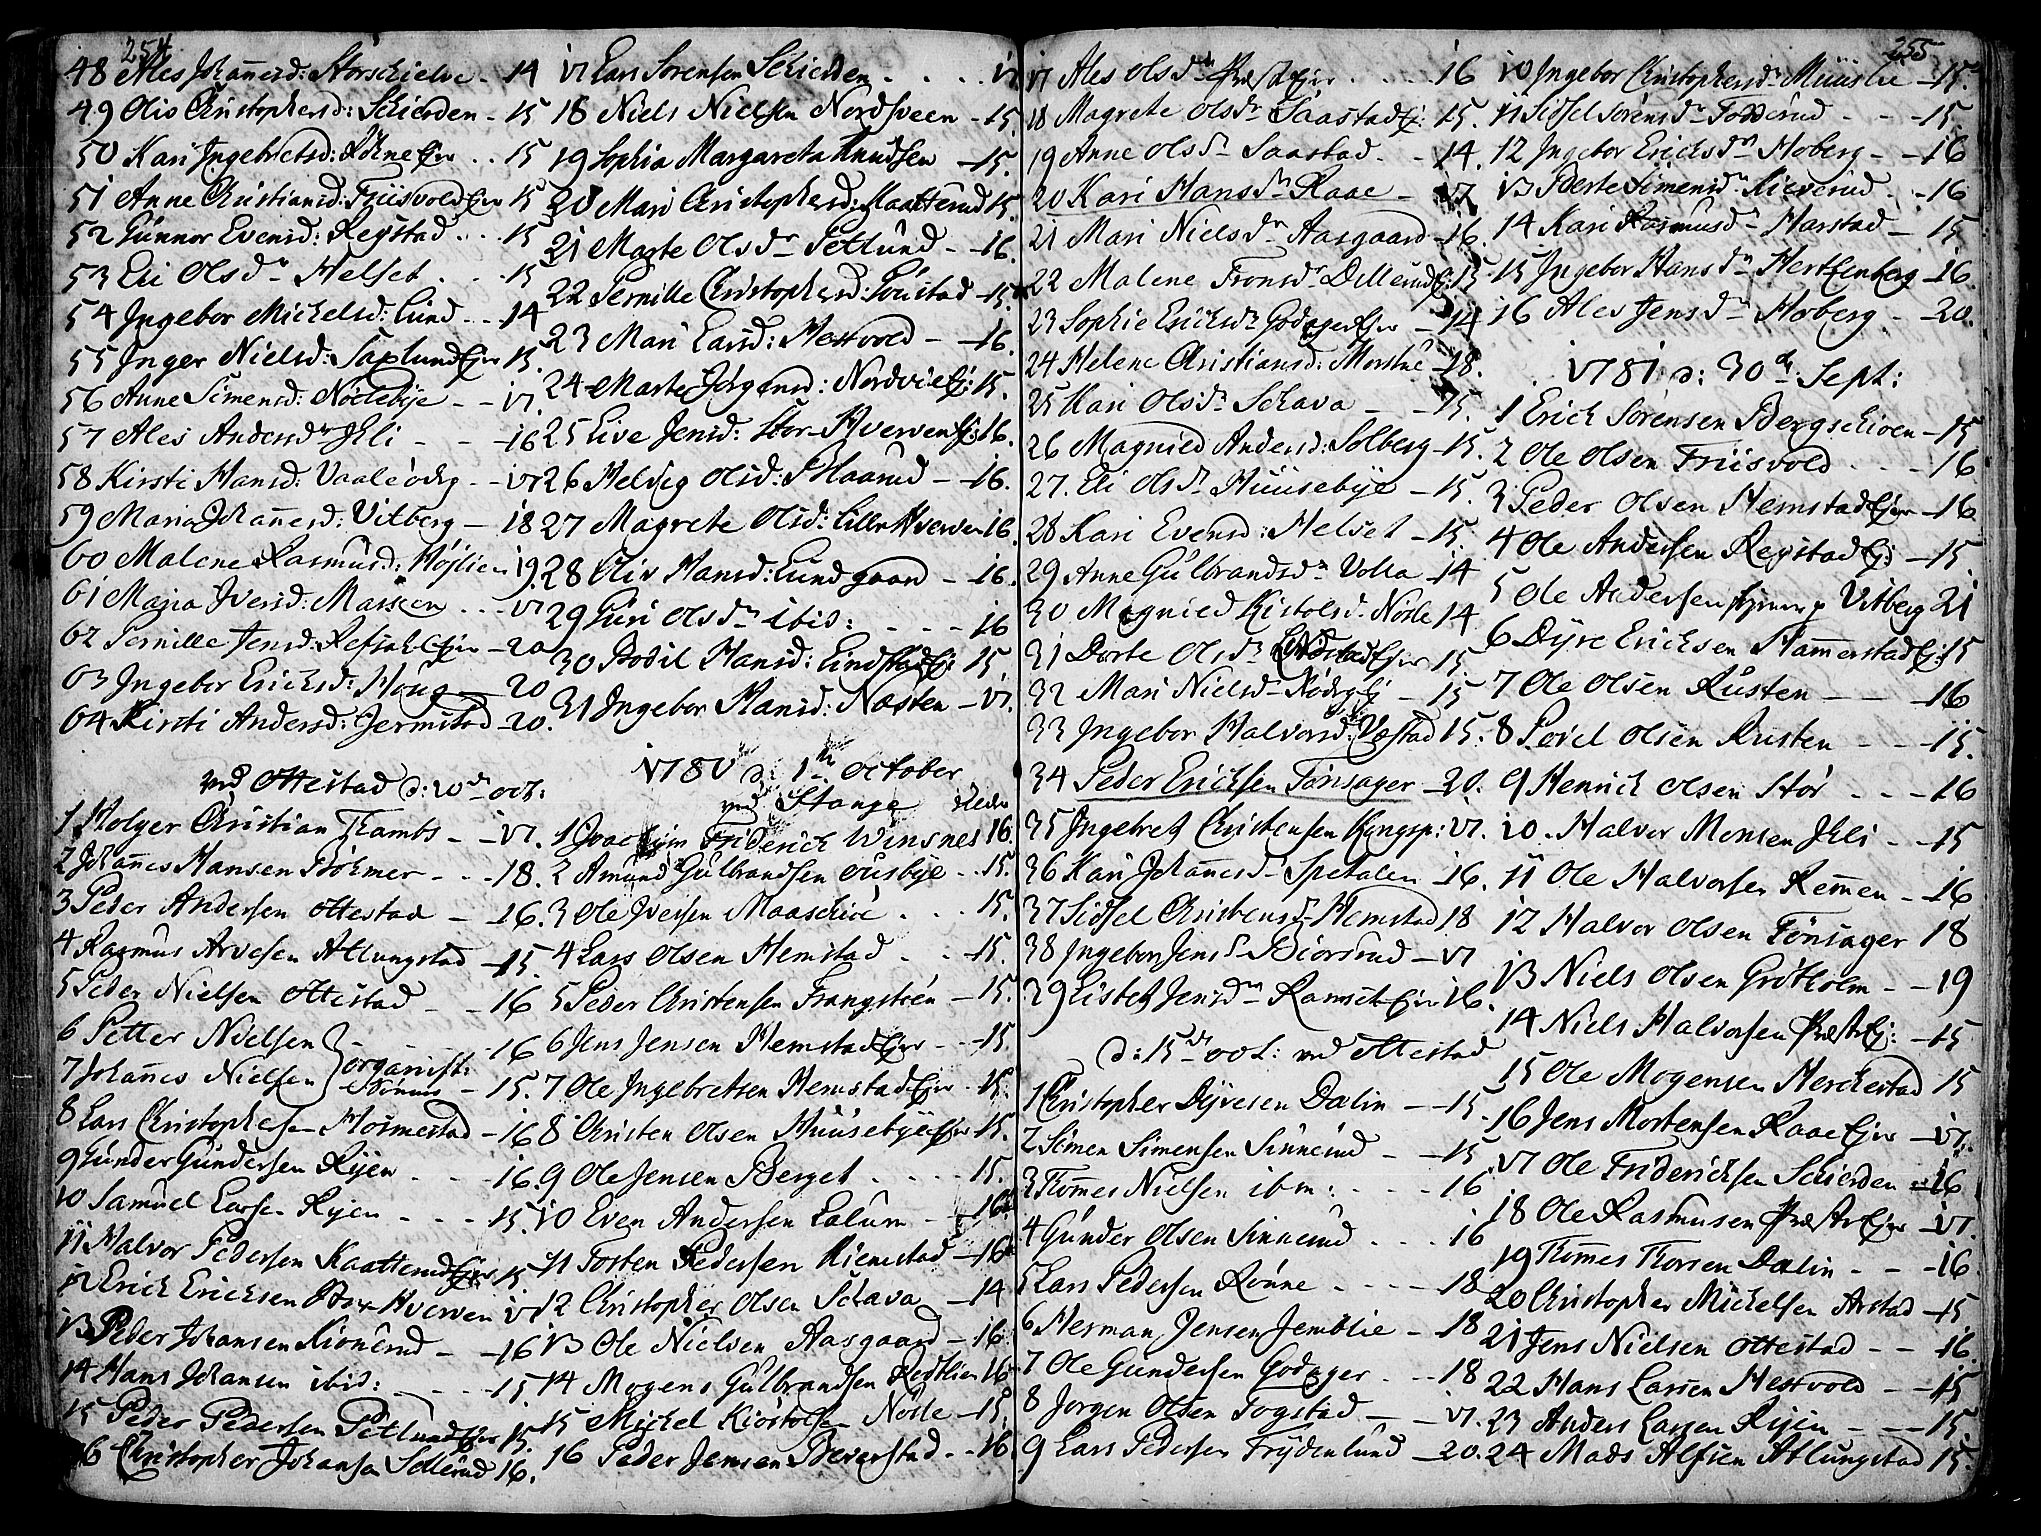 254
48 Ales Johannesd: Storschielve - 14
49 Oliv Christophersd: Schierden - 15
50 Kari Ingebretsd: Røhne Eier . . 15
51 Anne Christiansd: Friisvold Eier 15
52 Gunnor Evensd: Reystad . . . 15
53 Eli Olsdr Helset . . . . 15
54 Ingebor Michelsd: Lund . . 14
55 Inger Nielsd: Saxlund Eier 15.
56 Anne Simensd: Nöclebye - - 17.
57 Ales Andersdr Ihli - - - 16
58 Kirsti Hansd: Vaaleödeg - - 17
59 Maria Johannesd: Vitberg - 18
60 Malene Rasmusd: Höglien 19.
61 Maria Iversd: Marseen . . . 17
62 Pernille Jensd: Refsahl Eier - 20
63 Ingebor Ericksd: Houg - 20
64 Kirsti Andersd: Jermstad - 20.
ved Ottestad d: 10de oct:
1 Holger Christian Thambs - - 17.
2 Johannes Hansen Böhmer - - - 18.
3 Peder Andersen Ottestad - 16.
4 Rasmus Arvesen Atlungstad - 15.
5 Peder Nielsen Ottestad - - 16
6 Petter Nielsen - - - 16
7 Johannes Nielsen organist: - 15.
8 Lars Christophersen Hosmestad - 16
9 Gunder Gundersen Ryen . . . 16
10 Samuel Larsen Ryen - - - 15.
11 Halvor Pedersen Kaatterud Eier 15
12 Erich Ericksen Stor Hverven 17
13 Peder Johansen Kionerud - - 16
14 Hans Johansen ibid: - - - 15
15 Peder Pedersen Petlund Eier 15
16 Christopher Johansen Sellerud 16.
17 Lars Sörensen Schierden . . . . 17
18 Niels Nielsen Nordsveen - 15.
19 Sophia Margareta Knudsen - 15.
20 Mari Christophersd: Kaatterud 15.
21 Marte Olsdr Petlund - - 16.
22 Pernille Christophersd: Poustad - 15.
23 Mari Larsd: Hestvold - - 16.
24 Marte Jörgensd: Nordvie Ej: 15.
25 Live Jensd: Stor-Hverven Ej: 16.
26 Helvig Olsd: Skaarud - - 16.
27 Magrete Olsd: Lille Hverven 16.
28 Oliv Hansd: Lundgaard - 16.
29 Guri Olsdr ibid: - - - - 16
30 Bodil Hansd: Lindstad Ej: 15
31 Ingebor Hansd: Næsten - 17.
1780 d: 1te October
ved Stange
1 Joachim Friderich Winsnes 16.
2 Amund Gulbrandsen Ousbye . . 15.
3 Ole Iversen Maaschive . . . 15.
4 Lars Olsen Hemstad . . - 15.
5 Peder Christensen Frangsteen - 15.
6 Jens Jensen Hemstad Eier - - 15
7 Ole Ingebretsen Hemstad Eier - 15.
8 Christen Olsen Huusebye Eier 15.
9 Ole Jensen Berget . . . . . 15.
10 Even Andersen Lalum - - 16
11 Torsten Pedersen Kiemstad - 16
12 Christopher Olsen Schava - 14
13 Ole Nielsen Aasgaard - 16.
14 Mogens Gulbrandsen Rodthen 16
15 Michel Kiöstolsen Nosle - 15.
16 Peder Jensen Beverstad - - 16
255
17 Ales Olsdr Præst Eier . . . . 16
18 Magrete Olsdr Saastad Ej: 15.
19 Anne Olsdr Saastad . . - 14.
20 Kari Hansdr Raae - 17.
21 Mari Nielsdr Aasgaard - 16.
22 Malene Tronsdr Dillerud Ej: 15
23 Sophie Ericksdr Godager Eier - 14
24 Helene Christiansd: Morstue - 18.
25 Kari Olsdr Schava - - 15.
26 Magnied Andersd: Solberg - 15.
27. Eli Olsdr Huusebye - 15.
28 Kari Evensd: Helset - 15.
29 Anne Gulbrandsdr Volla - 14
30 Magnied Kistolsd. Nosle 14
31 Dorte Olsdr Eier 15
32 Mari Nielsdr Nödeg Ej - 15
33 Ingebor Halvorsdr Væstad 15.
34 Peder Ericksen Tönsager - 20.
35 Ingebret Christensen Kongsp: 17.
36 Kari Johannesdr Spetalen - 16.
37 Sidsel Christensdr Hemstad 18
38 Ingebor Jensdr Biörsrud - 17
39 Lisbet Jensdr Ramset Eier 16.
d: 15de oct: ved Ottestad
1 Christopher Dyresen Dælin - - 15.
2 Simen Simensen Sinnerud - - 15
3 Thomes Nielsen ibm: . . . . 16
4 Gunder Olsen Sinnerud . . . 16
5 Lars Pedersen Rönne - - - - 18
6 Herman Jensen Jemblie - 18
7 Ole Gundersen Godager . . - 18
8 Jorgen Olsen Togstad - - 17.
9 Lars Pedersen Frydenlund - 20.
10 Ingebor Christophersdr Muuslie - 15.
11 Sidsel Sörensdr Fodderud - - - 15
12 Ingebor Ericksdr Hoberg - - 16
13 Berte Simensdr Kieverud . . - 16
14 Kari Rasmusdr Harstad - 15
15 Ingebor Hansdr Hertzenberg - 16.
16 Ales Jensdr Hoberg - - 20.
1781 d: 30te: Sept:
1 Erich Sörensen Bergschioen - 15
2 Ole Olsen Friisvold . . . - 16
3 Peder Olsen Hemstad Eier - 16
4 Ole Andersen Reystad Ej: - 15.
5 Ole Andersen Vitberg 21
6 Dyre Ericksen Hammerstad Ej: 15
7 Ole Olsen Rusten - - - 16
8 Povel Olsen Rusten - - - 15.
9 Henrich Olsen Stör - - - 16
10. Halvor Monsen Ihli - - 15
11 Ole Halvorsen Remmen - - 16
12 Halvor Olsen Tönsager 18
13 Niels Olsen Grötholm - - 19
14 Niels Halvorsen Præst Ej: - 15
15 Ole Mogensen Herckestad 15
16 Jens Mortensen Raae Eier - 17.
17 Ole Friderichsen Schierden - 16
18 Ole Rasmusen Præst Eier - 17.
19 Thomes Thorsen Dælin - - - 16
20 Christopher Michelsen Arstad - 15
21 Jens Nielsen Ottestad - - 16.
22 Hans Larsen Hestvold - - 15
23 Anders Larsen Ryen - - - 15.
24 Mads Alfsen Atlungstad 15.